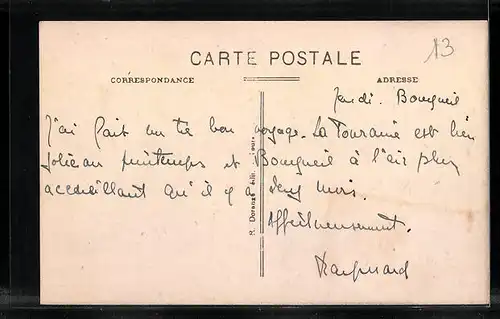 13
CARTE POSTALE
CORRESPONDANCE
ADRESSE
Jeudi. Bourgueil
J'ai fait un très bon voyage. La Touraine est bien
jolie au printemps et Bourgueil à l'air plus
accueillant qu'il y a deux mois.
Affectueusement.